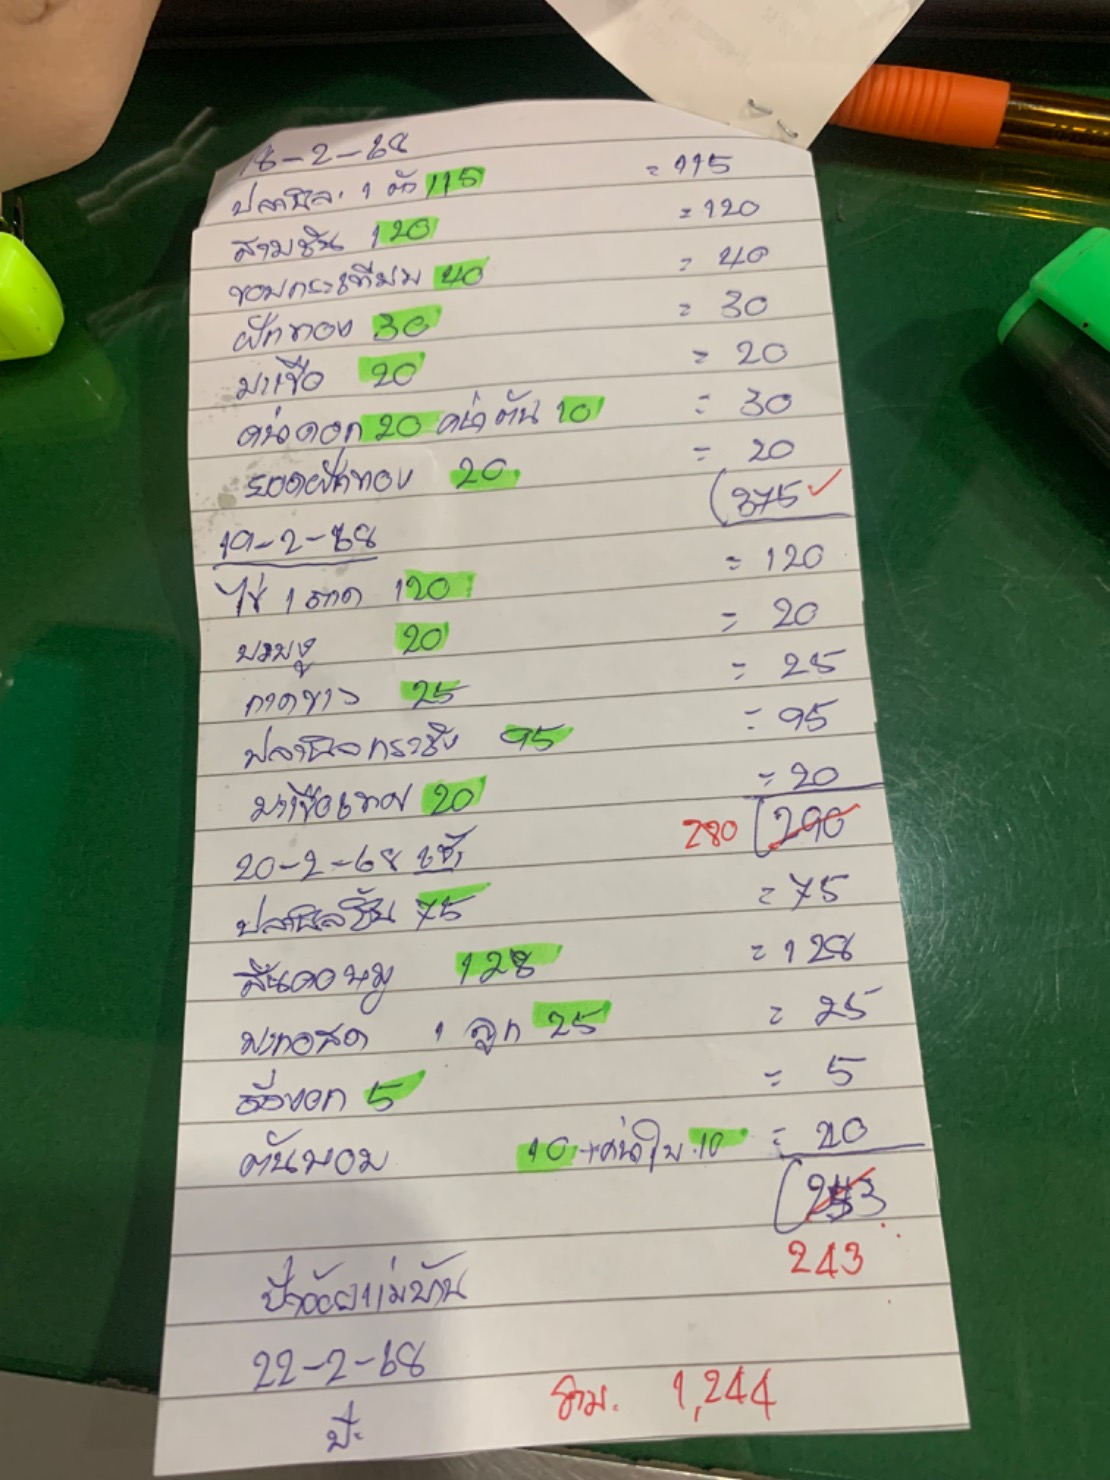 18-2-68
ปลานิล 1 ตัว 115 = 115
สามชั้น 120 = 120
หอมกระเทียม 40 = 40
ฝักทอง 30 = 30
มะเขือ 20 = 20
คน่าดอก 20 คน่าต้น 10 = 30
ยอดฝักทอง 20 = 20
375 ✓
19-2-68
ไข่ 1 ถาด 120 = 120
บวบงู 20 = 20
กาดขาว 25 = 25
ปลานิลกระชัง 95 = 95
มะเขือเทศ 20 = 20
280 (290
20-2-68 เช้า
ปลานิลชิ้น 75 = 75
สันคอหมู 128 = 128
1 ลูก 25 = 25
ถั่วงอก 5 = 5
ต้นหอม 10 + คน่าใบ 10 = 20
243
ป้าอ้อยแม่บ้าน
22-2-68
รวม. 1,244